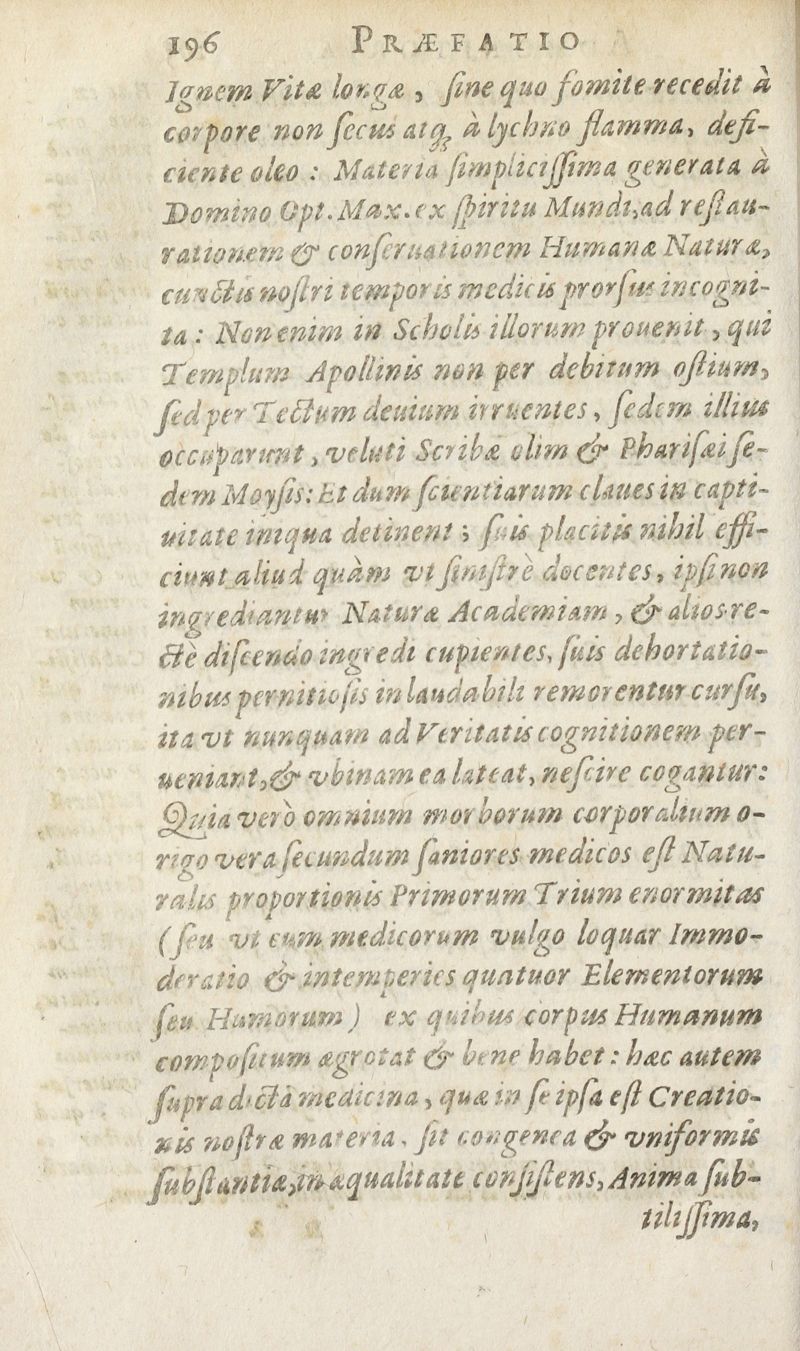 196 PRÆFATIO
Ignem Vitæ longæ, ſine quo fomite recedit à
corpore non ſecus atq; à lychno flamma, defi-
ciente oleo : Materia ſimpliciſſima generata à
Domino Opt. Max. ex ſpiritu Mundi, ad reſtau-
rationem & conſeruationem Humanæ Naturæ,
cunctis noſtri temporis medicis prorſus incogni-
ta : Non enim in Scholis illorum prouenit, qui
Templum Apollinis non per debitum oſtium,
ſed per Tectum deuium irruentes, ſedem illius
occuparunt, veluti Scribæ olim & Phariſæi ſe-
dem Moyſis: Et dum ſcientiarum claues in capti-
uitate iniqua detinent ; ſuis placitis nihil effi-
ciunt aliud quàm vt ſiniſtrè docentes, ipſi non
ingrediantur Naturæ Academiam, & alios re-
ctè diſcendo ingredi cupientes, ſuis dehortatio-
nibus pernitioſis in laudabili remorentur curſu,
ita vt nunquam ad Veritatis cognitionem per-
ueniant, & vbinam ea lateat, neſcire cogantur:
Quia verò omnium morborum corporalium o-
rigo vera ſecundum ſaniores medicos eſt Natu-
ralis proportionis Primorum Trium enormitas
(ſeu vt cum medicorum vulgo loquar Immo-
deratio & intemperies quatuor Elementorum
ſeu Humorum) ex quibus corpus Humanum
compoſitum ægrotat & bene habet : hæc autem
ſupradictà medicina, quæ in ſe ipſa eſt Creatio-
nis noſtræ materia, ſit congenea & vniformis
ſubſtantiæ, in æqualitate conſiſtens, Anima ſub-
tiliſſima,